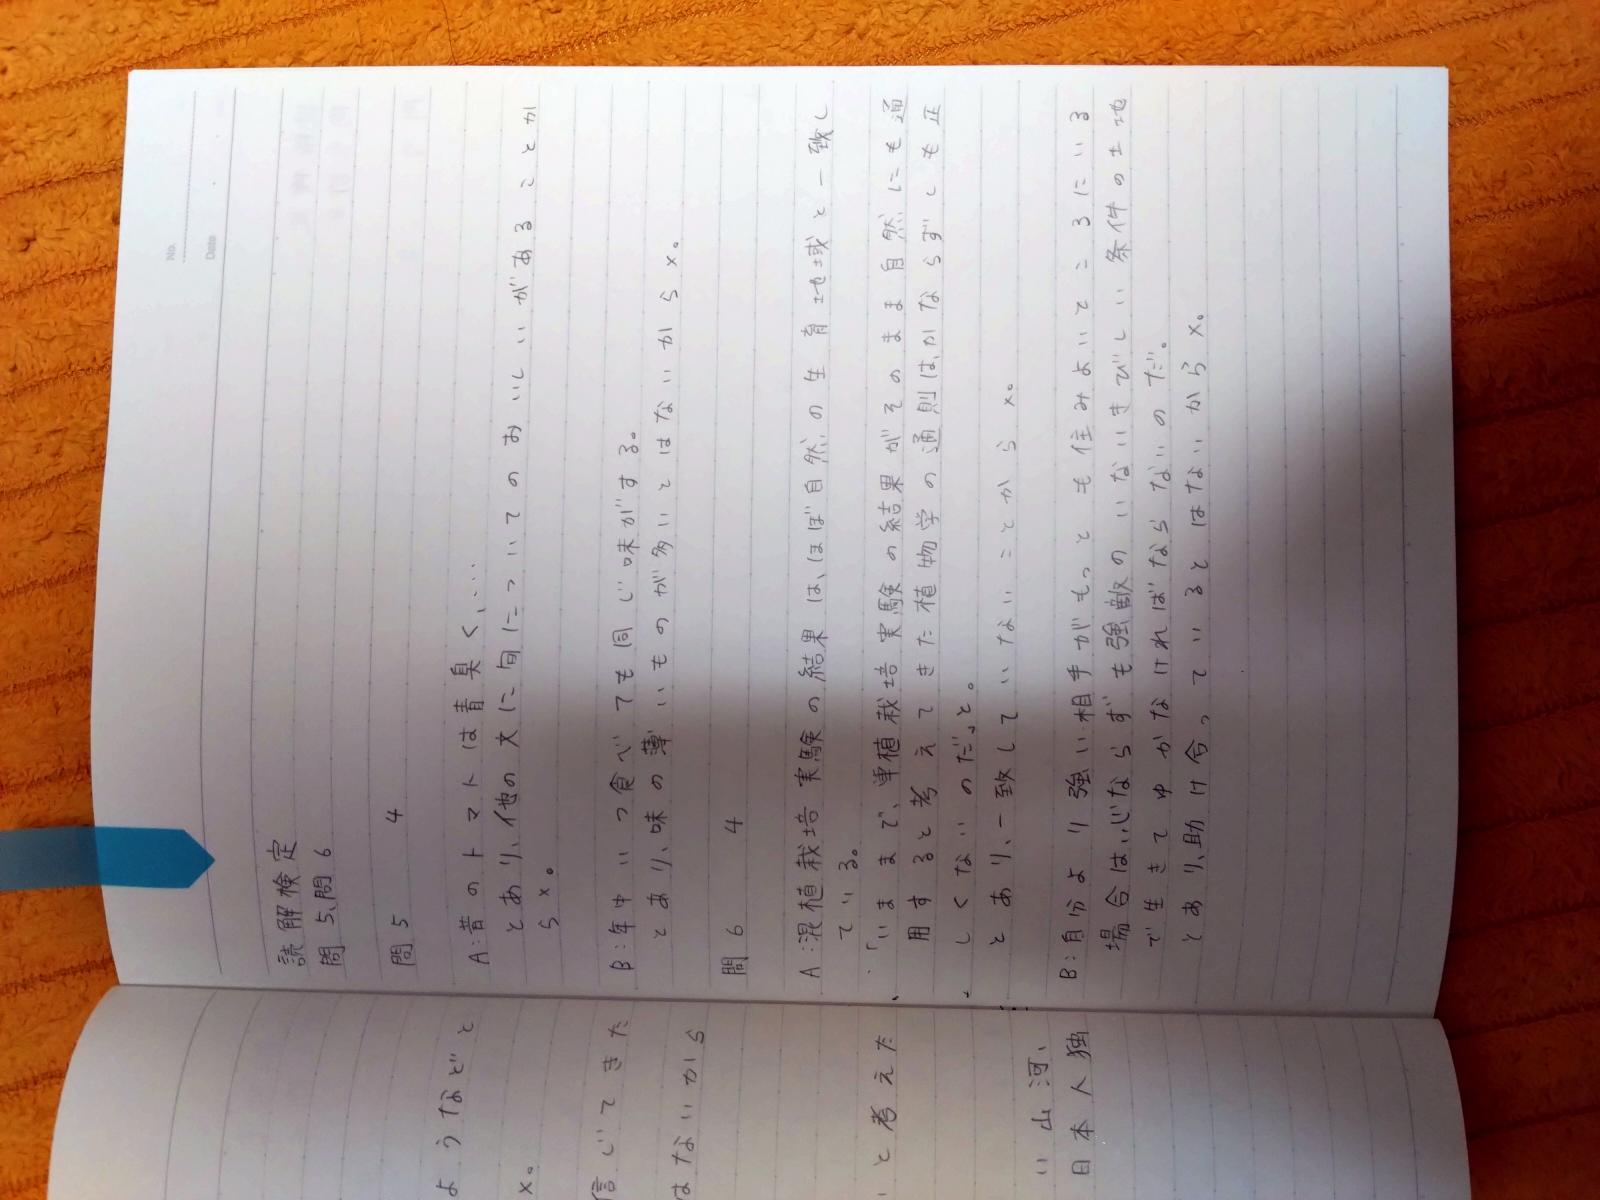 No.
Date
読解検定
問5、問6
問5 4
A:昔のトマトは青臭く、…
とあり、他の文に旬についてのおいしいがあることか
ら×。
B:年中いつ食べても同じ味がする。
とあり、味の薄いものが多いとはないから×。
問6 4
A:混植栽培実験の結果は、ほぼ自然の生育地域と一致し
ている。
「いままで、単植栽培実験の結果がそのまま自然にも通
用すると考えてきた植物学の通則は、かならずしも正
しくないのだ」と。
とあり、一致していないことから×。
B:自分より強い相手がもっとも住みよいところにいる
場合は、心ならずも強敵のいないきびしい条件の土地
で生きてゆかなければならないのだ。
とあり、助け合っているとはないから×。
ようなどと
×。
信じてきた
はないから
と考えた
い山河、
日本人独